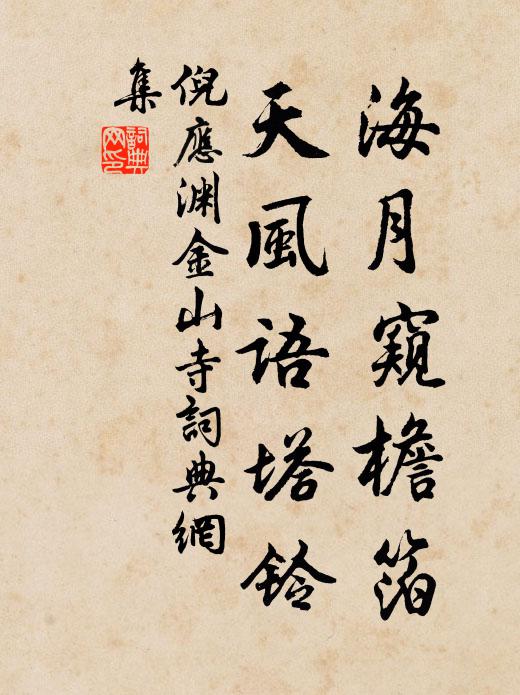 海月窺檐箔
天風語塔鈴
倪應渊金山寺詞典網
集
詞典
网印